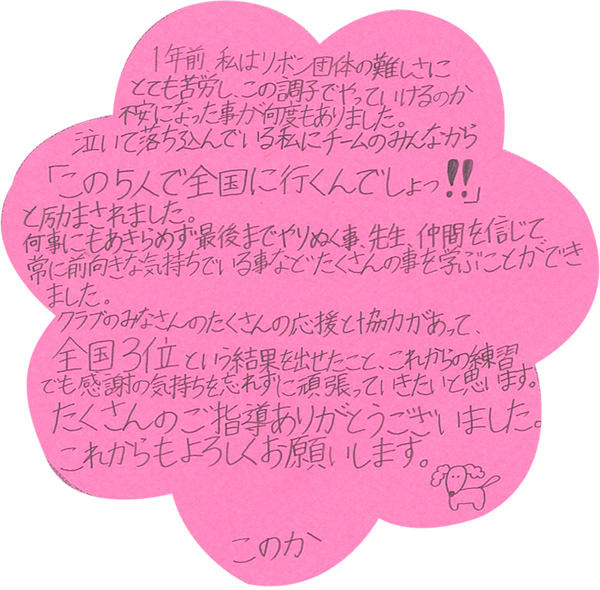 1年前、私はリボン団体の難しさに
とても苦労し、この調子でやっていけるのか
不安になった事が何度もありました。
泣いて落ち込んでいる私にチームのみんなから
「この5人で全国に行くんでしょっ!!」
と励まされました。
何事にもあきらめず最後までやりぬく事、先生、仲間を信じて
常に前向きな気持ちでいる事などたくさんの事を学ぶことができ
ました。
クラブのみなさんのたくさんの応援と協力があって、
全国3位という結果を出せたこと、これからの練習
でも感謝の気持ちを忘れずに頑張っていきたいと思います。
たくさんのご指導ありがとうございました。
これからもよろしくお願いします。
このか